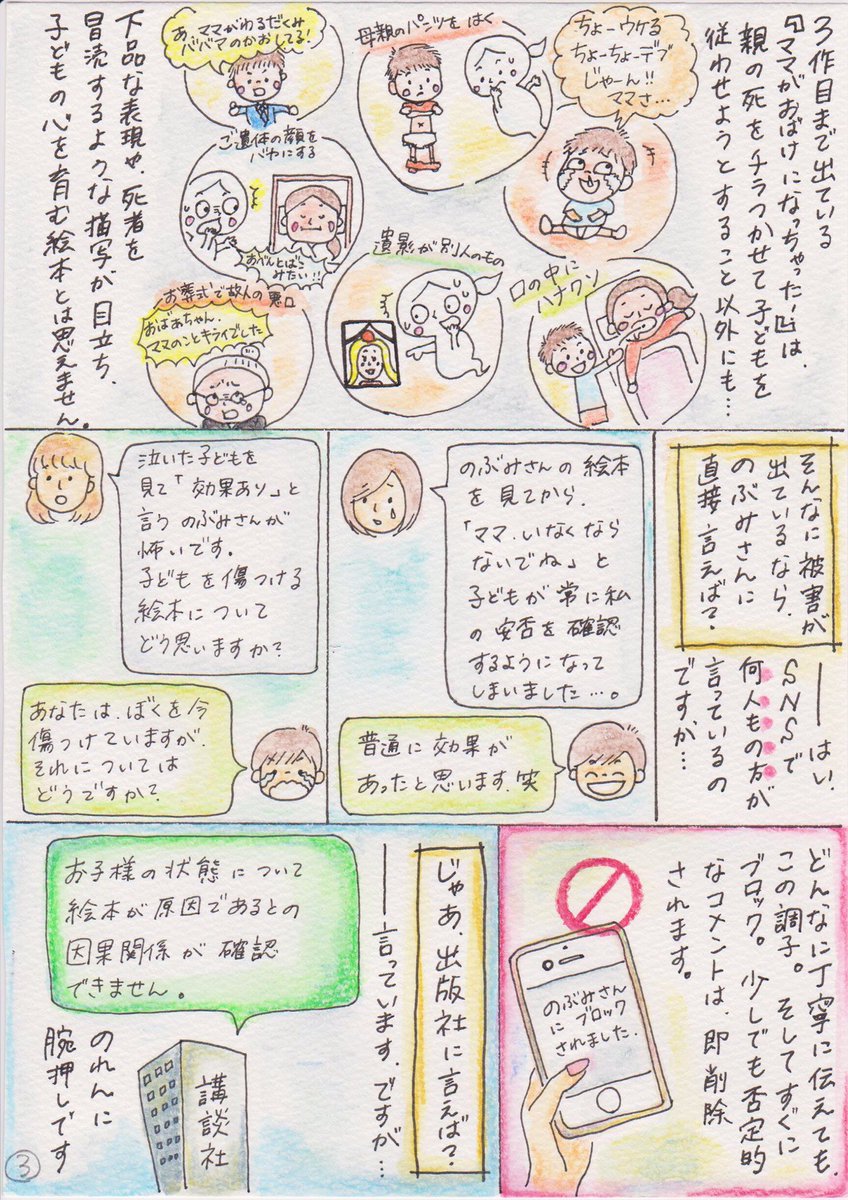 3作目まで出ている
『ママがおばけになっちゃった!』は、
親の死をチラつかせて子どもを
従わせようとすること以外にも…
ちょーウケる
ちょーちょーデブ
じゃーん!!
ママさ…
母親のパンツをはく
あ、ママがわるだくみ
ババアのかおしてる!
ご遺体の顔を
バカにする
おべんとばこ
みたい!!
口の中に
ハナクソ
遺影が別人のもの
お葬式で故人の悪口
おばあちゃん、
ママのことキライでした
下品な表現や、死者を
冒涜するような描写が目立ち、
子どもの心を育む絵本とは思えません。
そんなに被害が
出ているなら、
のぶみさんに
直接言えば?
――はい、
SNSで
何人もの方が
言っているの
ですが…
のぶみさんの絵本
を見てから、
「ママ、いなくなら
ないでね」と
子どもが常に私
の安否を確認
するようになって
しまいました…。
普通に効果が
あったと思います、笑
泣いた子どもを
見て「効果あり」と
言うのぶみさんが
怖いです。
子どもを傷つける
絵本について
どう思いますか?
あなたは、ぼくを今
傷つけていますが、
それについては
どうですか?
どんなに丁寧に伝えても、
この調子。そしてすぐに
ブロック。少しでも否定的
なコメントは、即削除
されます。
のぶみさん
にブロック
されました.
じゃあ、出版社に言えば?
――言っています、ですが…
お子様の状態について
絵本が原因であるとの
因果関係が確認
できません。
講談社
のれんに
腕押しです
3